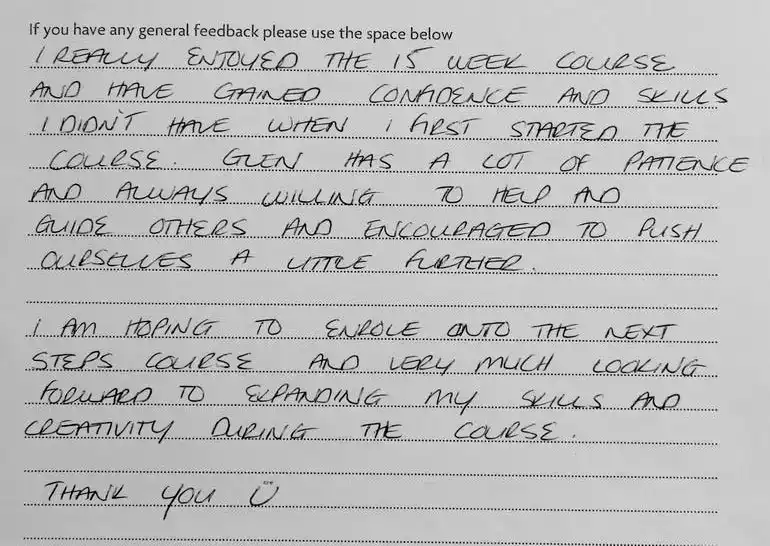 If you have any general feedback please use the space below
I REALLY ENJOYED THE 15 WEEK COURSE
AND HAVE GAINED CONFIDENCE AND SKILLS
I DIDN'T HAVE WHEN I FIRST STARTED THE
COURSE. GLEN HAS A LOT OF PATIENCE
AND ALWAYS WILLING TO HELP AND
GUIDE OTHERS AND ENCOURAGED TO PUSH
OURSELVES A LITTLE FURTHER.
I AM HOPING TO ENROLE ONTO THE NEXT
STEPS COURSE AND VERY MUCH LOOKING
FORWARD TO EXPANDING MY SKILLS AND
CREATIVITY DURING THE COURSE.
THANK YOU Ü